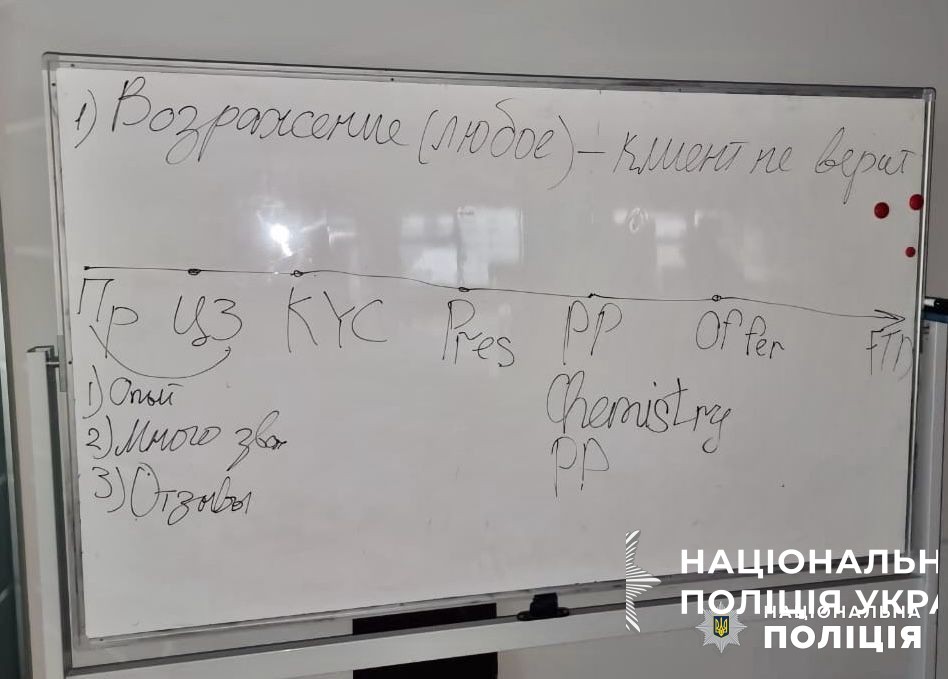 1) Возражение (любое) – клиент не верит
Пр ЦЗ KYC Pres PP Offer FTD
1) Опыт
2) Много
3) Отзывы
Chemistry
PP
НАЦІОНАЛЬН
ПОЛІЦІЯ УКРА
НАЦІОНАЛЬНА
ПОЛІЦІЯ